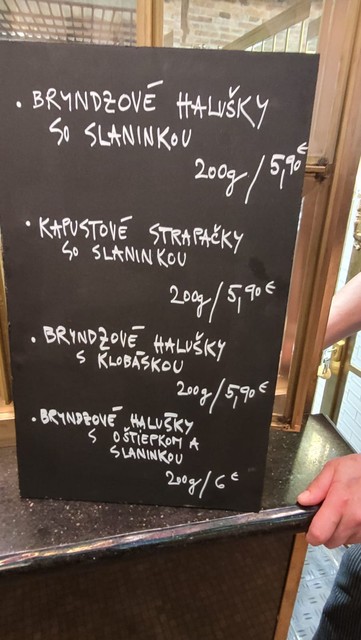 • BRYNDZOVÉ HALUŠKY
SO SLANINKOU
200g / 5,90€
• KAPUSTOVÉ STRAPAČKY
SO SLANINKOU
200g / 5,90€
• BRYNDZOVÉ HALUŠKY
S KLOBÁSKOU
200g / 5,90€
• BRYNDZOVÉ HALUŠKY
S OŠTIEPKOM A
SLANINKOU
200g / 6€